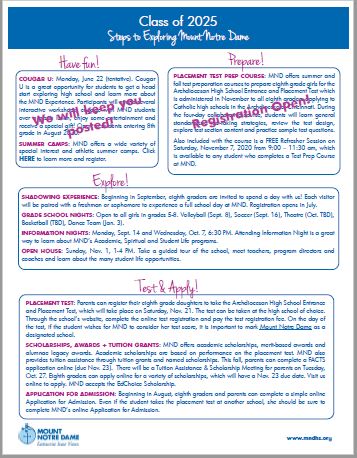 Class of 2025
Steps to Exploring Mount Notre Dame
Have fun!
COUGAR U: Monday, June 22 (tentative). Cougar
U is a great opportunity for students to get a head
start exploring high school and learn more about
the MND Experience. Participants will
interactive MND students
enjoy some entertainment and
receive a special gift! entering 8th
grade in August
We will keep you
posted!
SUMMER CAMPS: MND offers a wide variety of
special interest and athletic summer camps. Click
HERE to learn more and register.
Prepare!
PLACEMENT TEST PREP COURSE: MND offers summer and
fall test preparation courses to prepare eighth grade girls for the
Archdiocesan High School Entrance and Placement Test which
is administered in November to all eighth graders applying to
Catholic high schools in the Archdiocese of Cincinnati. During
the four-day students will learn general
strategies, review the test design,
explore test section content and practice sample test questions.
Registration Open!
Also included with the course is a FREE Refresher Session on
Saturday, November 7, 2020 from 9:00 - 11:30 am, which is
available to any student who completes a Test Prep Course
at MND.
Explore!
SHADOWING EXPERIENCE: Beginning in September, eighth graders are invited to spend a day with us! Each visitor
will be paired with a freshman or sophomore to experience a full school day at MND. Registration opens in July.
GRADE SCHOOL NIGHTS: Open to all girls in grades 5-8. Volleyball (Sept. 8), Soccer (Sept. 16), Theatre (Oct. TBD),
Basketball (TBD), Dance Team (Jan. 3).
INFORMATION NIGHTS: Monday, Sept. 14 and Wednesday, Oct. 7, 6:30 PM. Attending Information Night is a great
way to learn about MND's Academic, Spiritual and Student Life programs.
OPEN HOUSE: Sunday, Nov. 1, 1-4 PM. Take a guided tour of the school, meet teachers, program directors and
coaches and learn about the many student life opportunities.
Test & Apply!
PLACEMENT TEST: Parents can register their eighth grade daughters to take the Archdiocesan High School Entrance
and Placement Test, which will take place on Saturday, Nov. 21. The test can be taken at the high school of choice.
Through the school's website, complete the online test registration and pay the test registration fee. On the day of
the test, if the student wishes for MND to consider her test score, it is important to mark Mount Notre Dame as a
designated school.
SCHOLARSHIPS, AWARDS + TUITION GRANTS: MND offers academic scholarships, merit-based awards and
alumnae legacy awards. Academic scholarships are based on performance on the placement test. MND also
provides tuition assistance through tuition grants and named scholarships. This fall, parents can complete a FACTS
application online (due Nov. 23). There will be a Tuition Assistance & Scholarship Meeting for parents on Tuesday,
Oct. 27. Eighth graders can apply online for a variety of scholarships, which will have a Nov. 23 due date. Visit us
online to apply. MND accepts the EdChoice Scholarship.
APPLICATION FOR ADMISSION: Beginning in August, eighth graders and parents can complete a simple online
Application for Admission. Even if the student takes the placement test at another school, she should be sure to
complete MND's online Application for Admission.
MOUNT
NOTRE DAME
www.mndhs.org